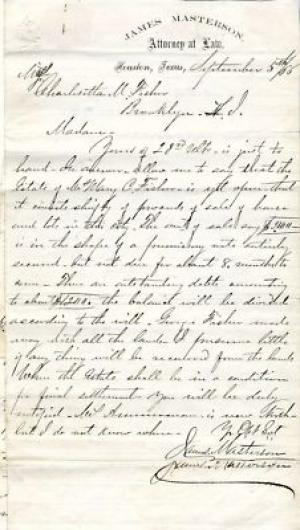 JAMES MASTERSON,
Attorney at Law,
Houston, Texas, September 5th
Charlotte M. Fisher
Brooklyn
Madam
Yours of 28th Ult. is just to
hand. In answer allow me to say that the
Estate of Mrs Mary C. Fisher is yet open that
it consists chiefly of proceeds of sale of house
and lots in this city. The out of sale, say
is in the shape of a promissory note entirely
secured, but not due for about 8 months to
come. There are outstanding debts amounting
to about the balance will be divided
according to the will. George Fisher made
away with all the lands I presume little
if any thing will be received from the lands
When the Estate shall be in a condition
for final settlement you will be duly
notified. is now
but I do not know where.
Yr Obt Svt
James Masterson
James Masterson